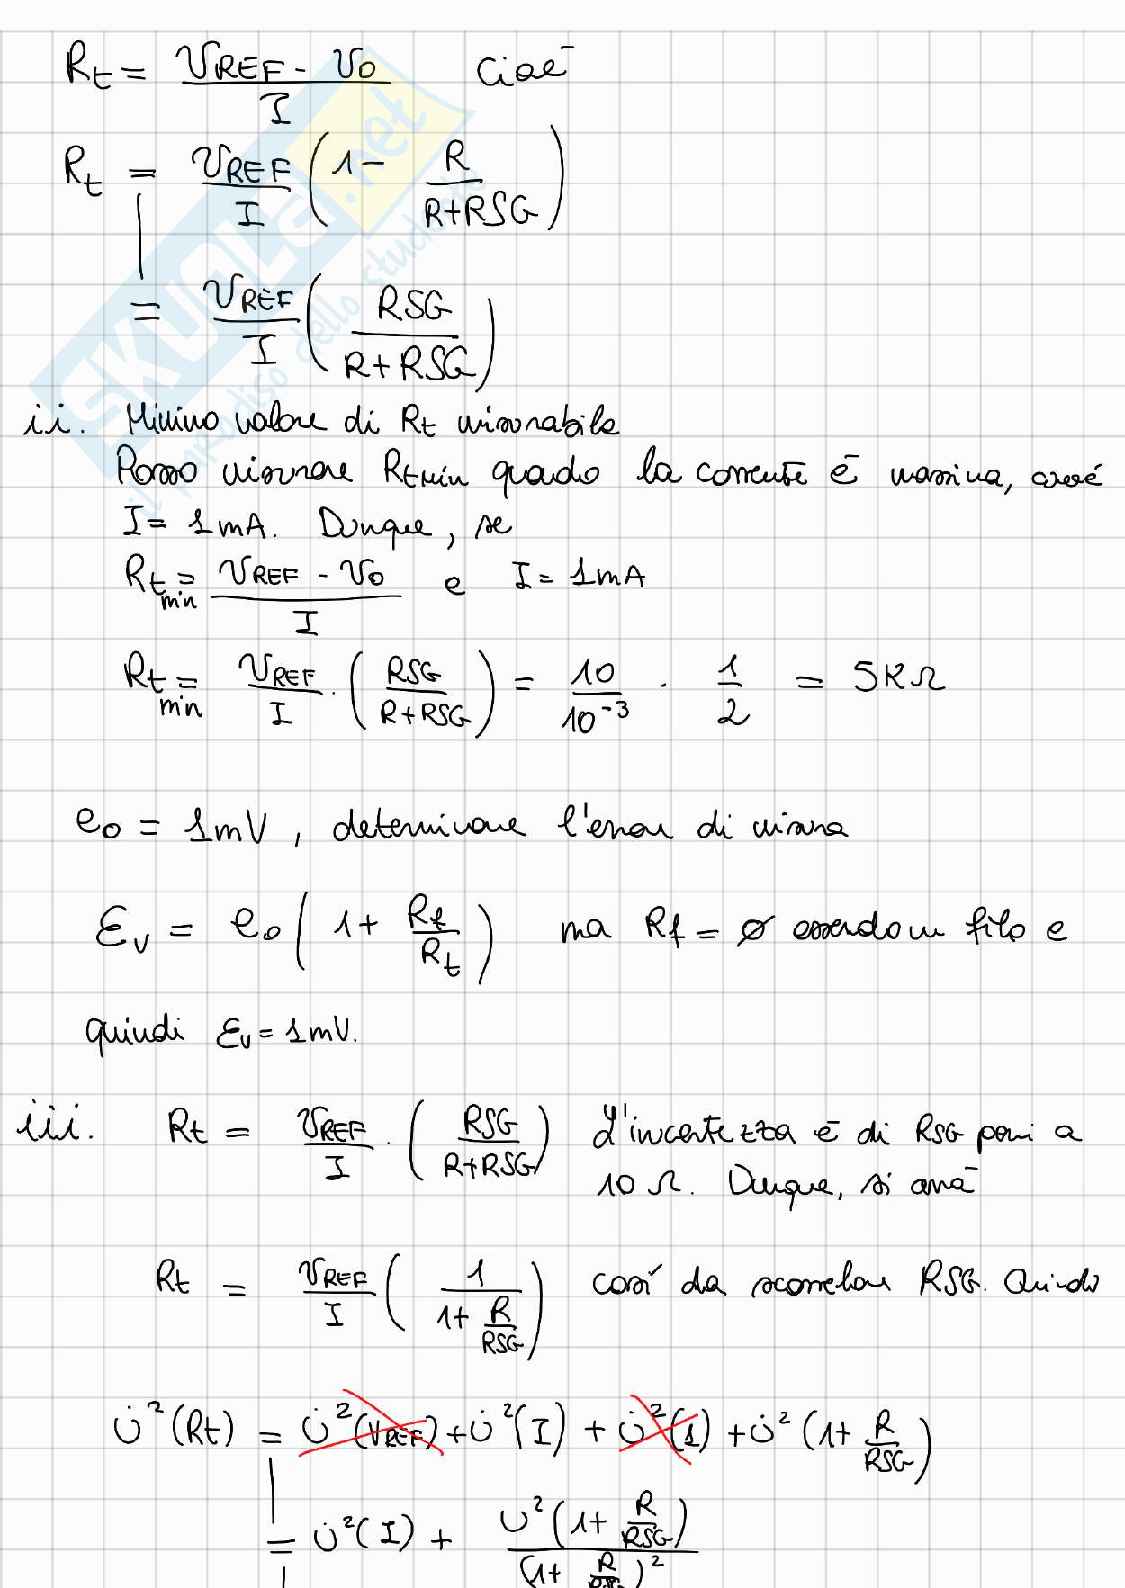 Rt = VREF - V0 / I cioè
Rt = VREF / I (1 - R / R+RSG)
= VREF / I (RSG / R+RSG)
ii. Minimo valore di Rt misurabile
Posso misurare Rtmin quado la corrente è massima, cioè
I = 1mA. Dunque, se
Rt min = VREF - V0 / I e I = 1mA
Rt min = VREF / I · (RSG / R+RSG) = 10 / 10^-3 · 1 / 2 = 5KΩ
e0 = 1mV, determinare l'errore di misura
Ɛv = e0 (1 + Rf / Rt) ma Rf = ø essendo un filo e
quindi Ɛv = 1mV.
iii. Rt = VREF / I · (RSG / R+RSG) L'incertezza è di RSG pari a
10 Ω. Dunque, si avrà
Rt = VREF / I (1 / 1 + R / RSG) così da scorrelare RSG. Quindi
U̇²(Rt) = U̇²(VREF) + U̇²(I) + U̇²(1) + U̇²(1 + R / RSG)
= U̇²(I) + U²(1 + R / RSG) / (1 + R / RSG)²
SKUOLA.net
il paradiso dello studente